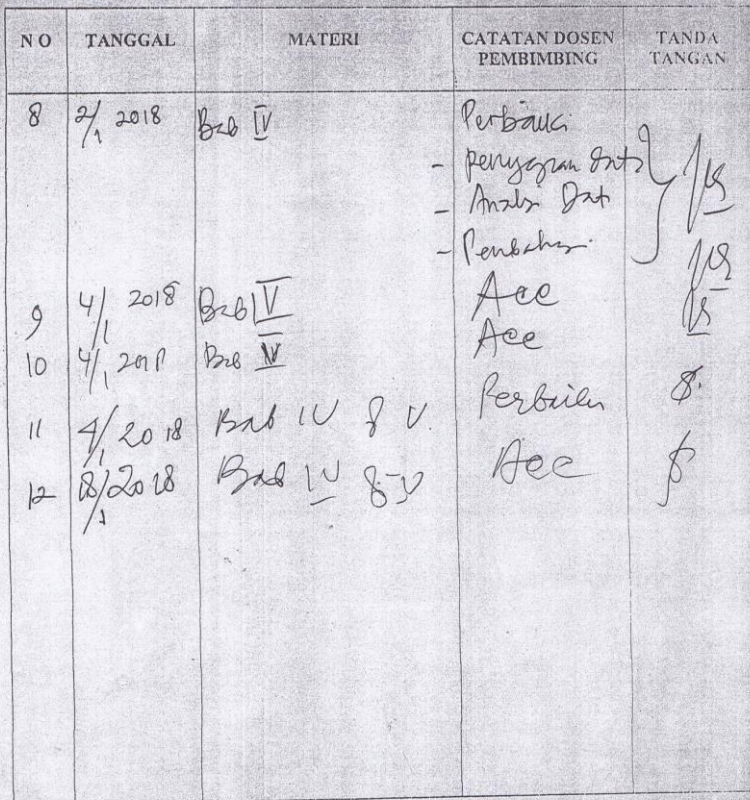 NO TANGGAL MATERI CATATAN DOSEN PEMBIMBING TANDA TANGAN
8 2/1 2018 Bab IV Perbaiki
- penyajian data
- Analisi Dat
- Pembahas
9 4/1 2018 Bab V Acc
10 4/1 2018 Bab IV Acc
11 4/1 2018 Bab IV & V Perbaiki
12 8/1 2018 Bab IV & V Acc